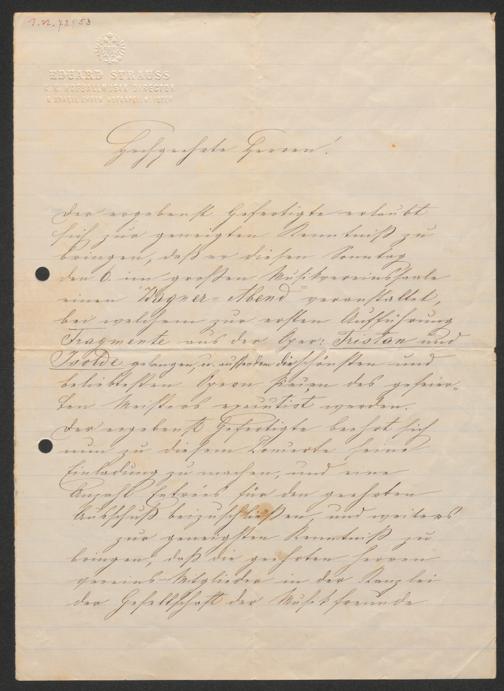 I.N. 72153
EDUARD STRAUSS
K. K. HOFBALLMUSIK DIRECTOR
Hochgeehrte Herren!
Der ergebenst Gefertigte erlaubt
sich zur geneigten Kenntniß zu
bringen, daß er diesen Sonntag
den 6. im großen Musikvereinssaale
einen "Wagner-Abend" veranstaltet,
bei welchem zur ersten Aufführung
Fragmente aus der Oper: Tristan und
Isolde gelangen, u. außerdem die schönsten und
beliebtesten Opern Piecen des gefeier-
ten Meisters executirt werden.
Der ergebenst Gefertigte beehrt sich
nun zu diesem Concerte seine
Einladung zu machen, und eine
Anzahl Entrées für den geehrten
Ausschuß beizuschließen, und weiters
zur geneigten Kenntniß zu
bringen, daß die geehrten Herren
Vereins-Mitglieder in der Kanzlei
der Gesellschaft der Musikfreunde